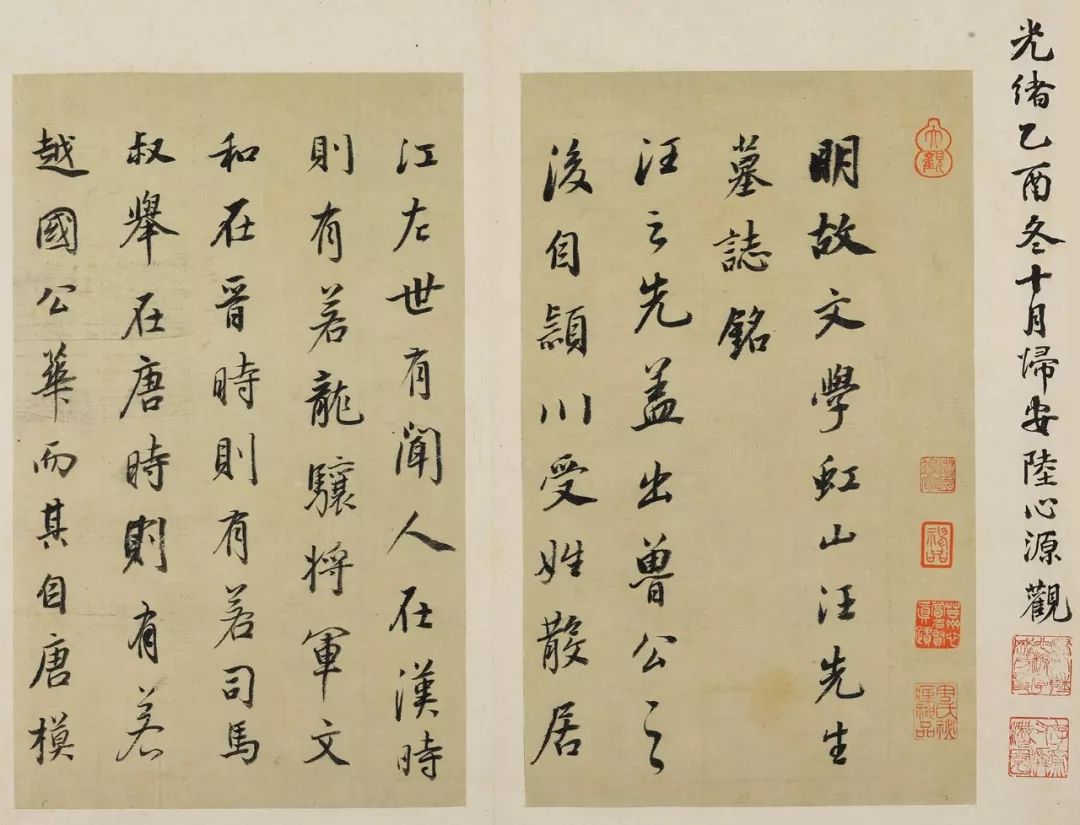 光緒乙酉冬十月歸安陸心源觀
大觀
神品
明故文學虹山汪先生
墓誌銘
汪之先盖出魯公之
後自潁川受姓散居
江左世有聞人在漢時
則有若龍驤将軍文
和在晉時則有若司馬
叔舉在唐時則有若
越國公華而其自唐模